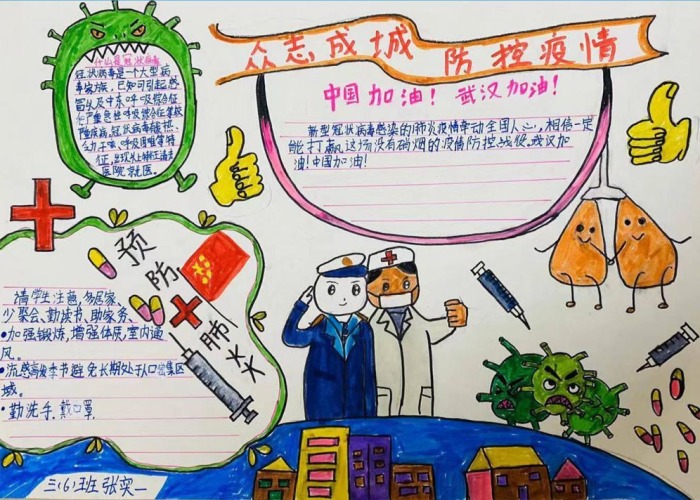 众志成城 防控疫情
中国加油！ 武汉加油！
新型冠状病毒感染的肺炎疫情牵动全国人心，相信一定
能打赢这场没有硝烟的疫情防控战役。武汉加
油！中国加油！
什么是冠状病毒
冠状病毒是一个大型病
毒家族，已知可引起感
冒以及中东呼吸综合征
和严重急性呼吸综合征等较
重疾病。
力、干咳、呼吸困难等特
征，
医院就医。
预防
肺炎
请学生注意，多居家、
少聚会、勤读书、助家务、
•加强锻炼，增强体质，室内通
风。
•流感高发季节避免长期处于人口密集区
域。
•勤洗手，戴口罩，
三(6)班张奕一